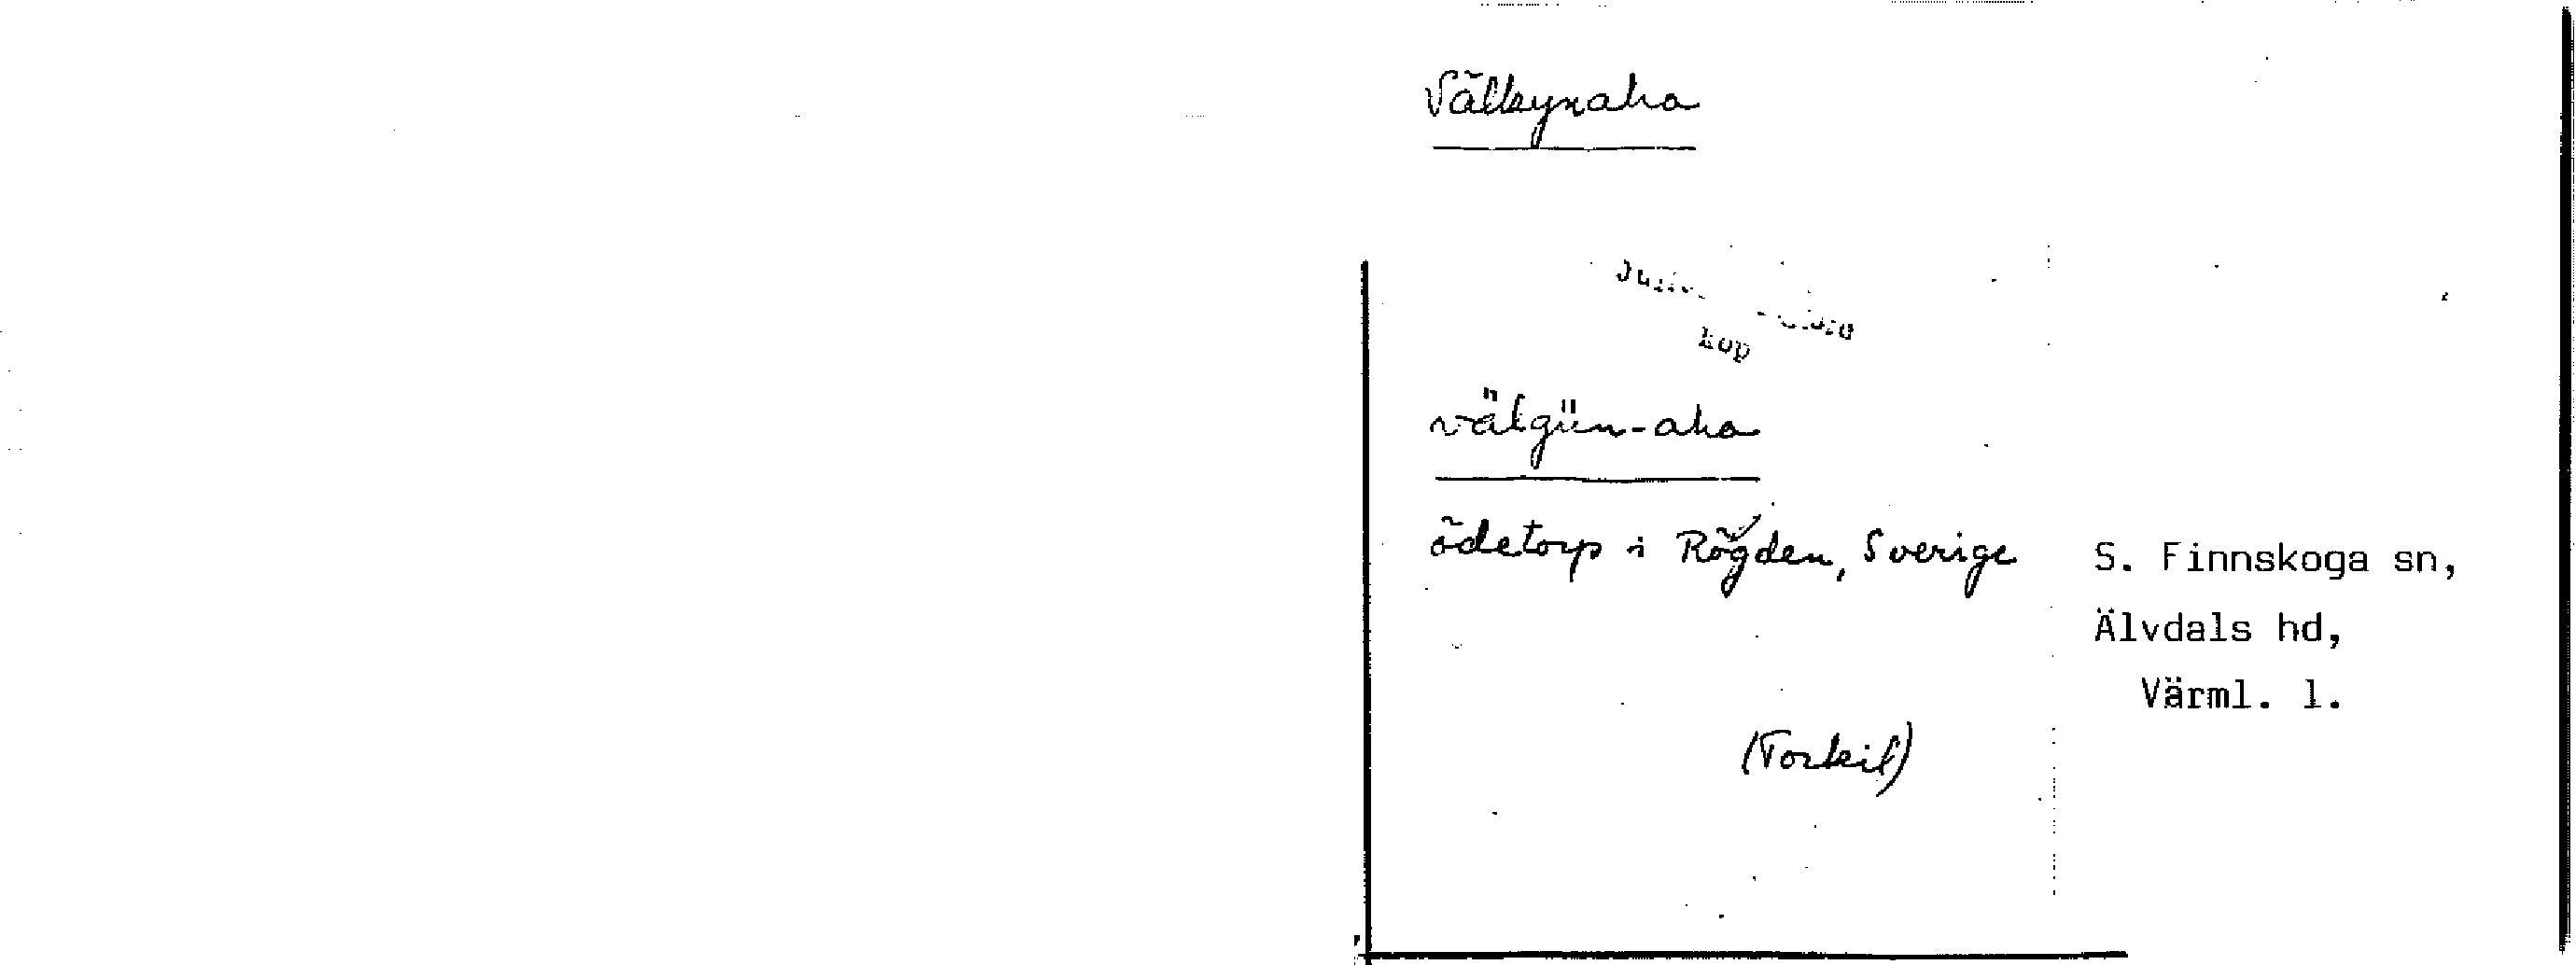 Välkynaho
kop
välgün-aho
ödetorp i Rögden, Sverige
S. Finnskoga sn,
Älvdals hd,
Värml. l.
(Torkil)